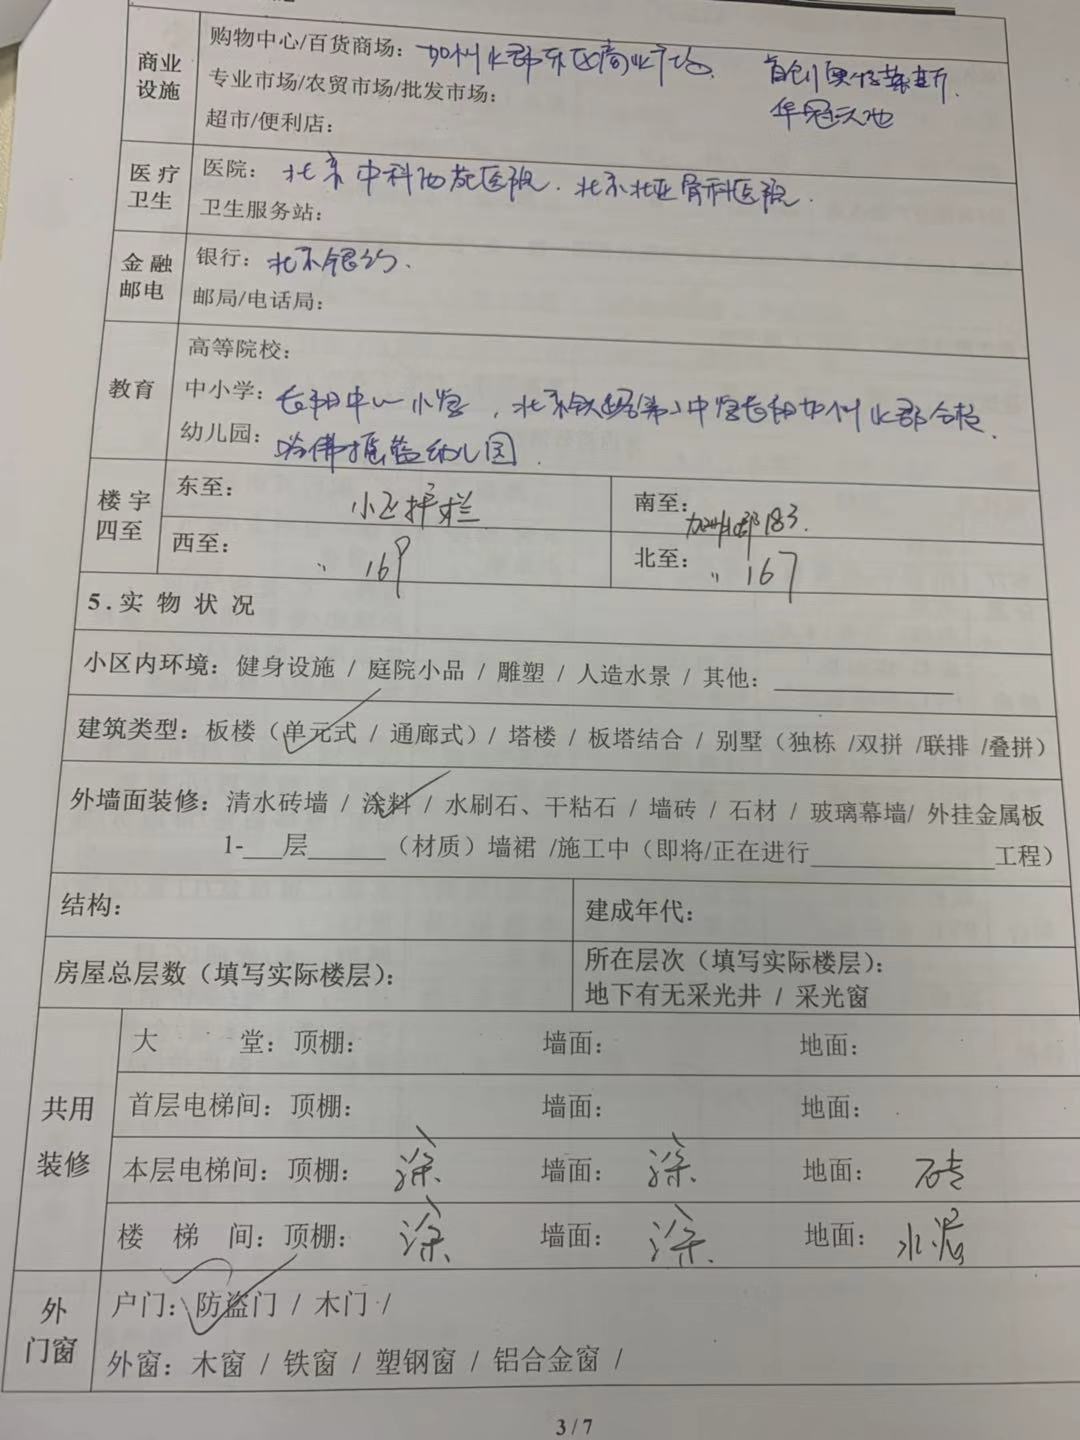 商业设施
购物中心/百货商场：加州水郡东区商业广场 首创奥特莱斯.
专业市场/农贸市场/批发市场： 华冠天地
超市/便利店：
医疗卫生
医院：北京中科白癜医院.北京北亚骨科医院.
卫生服务站：
金融邮电
银行：北京银行.
邮局/电话局：
教育
高等院校：
中小学：长阳中心小学，北京铁路第二中学长阳加州水郡分校.
幼儿园：哈佛摇篮幼儿园.
楼宇四至
东至：小区护栏 南至：加州水郡183.
西至：〃 169 北至：〃 167
5.实物状况
小区内环境：健身设施 / 庭院小品 / 雕塑 / 人造水景 / 其他：
建筑类型：板楼（单元式 / 通廊式）/ 塔楼 / 板塔结合 / 别墅（独栋 /双拼 /联排 /叠拼）
外墙面装修：清水砖墙 / 涂料 / 水刷石、干粘石 / 墙砖 / 石材 / 玻璃幕墙/ 外挂金属板
1-___层______（材质）墙裙 /施工中（即将/正在进行______________工程）
结构： 建成年代：
房屋总层数（填写实际楼层）： 所在层次（填写实际楼层）：
地下有无采光井 / 采光窗
共用装修
大 堂：顶棚： 墙面： 地面：
首层电梯间：顶棚： 墙面： 地面：
本层电梯间：顶棚：涂 墙面：涂 地面：砖
楼 梯 间：顶棚：涂 墙面：涂 地面：水泥
外门窗
户门：防盗门 / 木门 /
外窗：木窗 / 铁窗 / 塑钢窗 / 铝合金窗 /
3 / 7